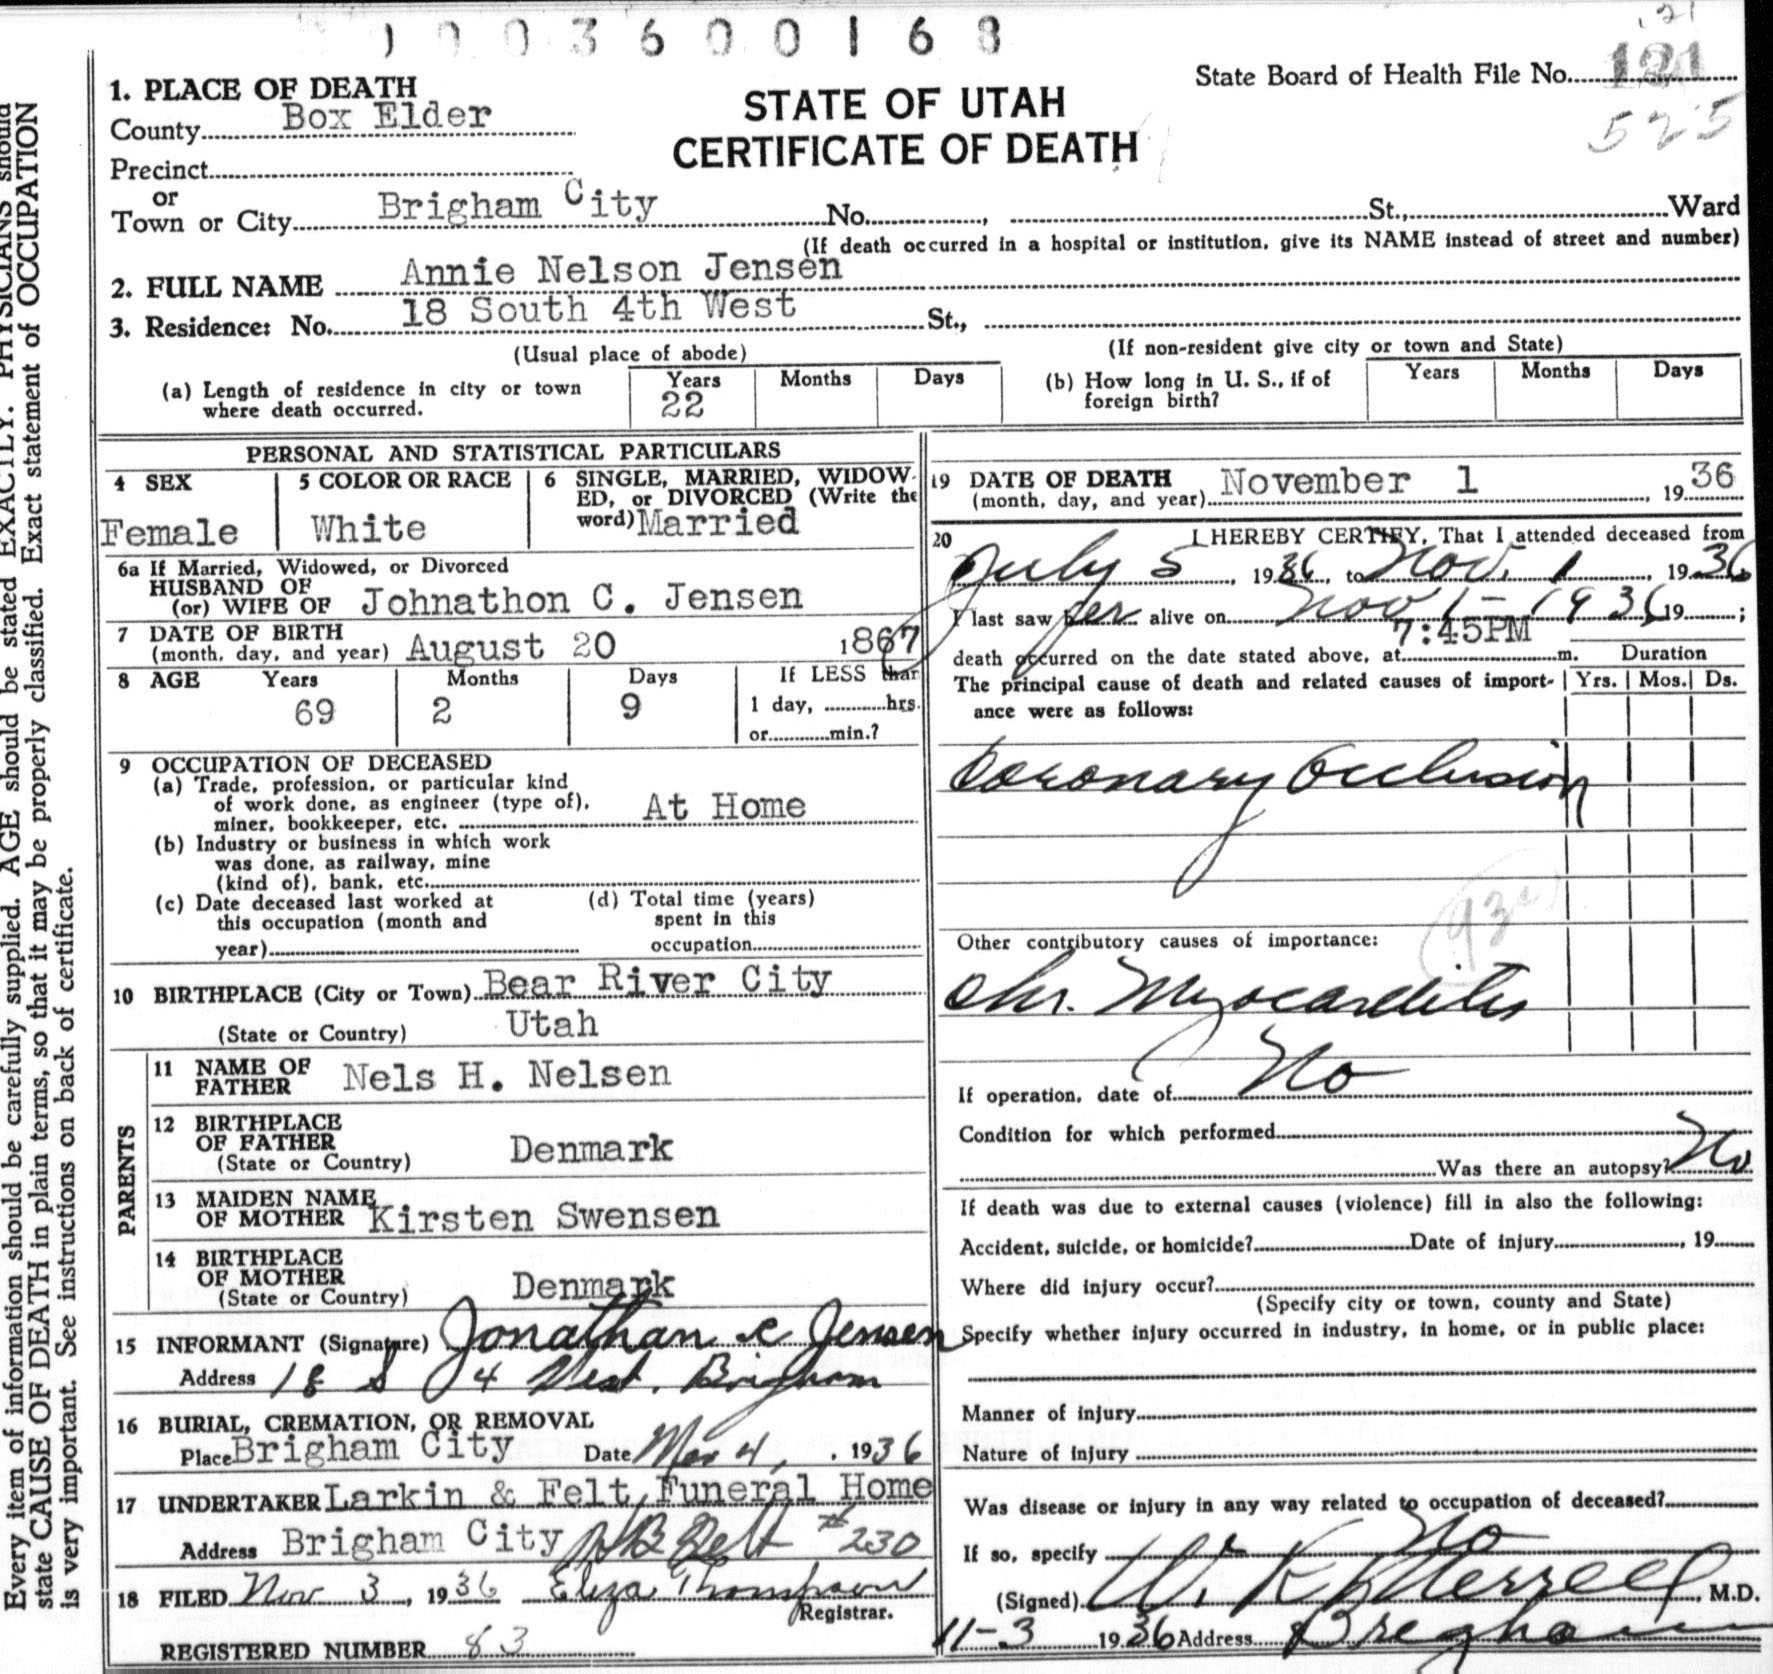 1003600168
State Board of Health File No. 121
525
STATE OF UTAH
CERTIFICATE OF DEATH
1. PLACE OF DEATH
County Box Elder
Precinct
or
Town or City Brigham City No. , St., Ward
(If death occurred in a hospital or institution, give its NAME instead of street and number)
2. FULL NAME Annie Nelson Jensen
3. Residence: No. 18 South 4th West St.,
(Usual place of abode) (If non-resident give city or town and State)
(a) Length of residence in city or town where death occurred. Years 22 Months Days
(b) How long in U. S., if of foreign birth? Years Months Days
PERSONAL AND STATISTICAL PARTICULARS
4 SEX Female
5 COLOR OR RACE White
6 SINGLE, MARRIED, WIDOWED, or DIVORCED (Write the word) Married
6a If Married, Widowed, or Divorced
HUSBAND OF
(or) WIFE OF Johnathon C. Jensen
7 DATE OF BIRTH
(month, day, and year) August 20 1867
8 AGE Years 69 Months 2 Days 9 If LESS than
1 day, hrs.
or min.?
9 OCCUPATION OF DECEASED
(a) Trade, profession, or particular kind
of work done, as engineer (type of),
miner, bookkeeper, etc. At Home
(b) Industry or business in which work
was done, as railway, mine
(kind of), bank, etc.
(c) Date deceased last worked at
this occupation (month and
year)
(d) Total time (years)
spent in this
occupation
10 BIRTHPLACE (City or Town) Bear River City
(State or Country) Utah
PARENTS
11 NAME OF
FATHER Nels H. Nelsen
12 BIRTHPLACE
OF FATHER
(State or Country) Denmark
13 MAIDEN NAME
OF MOTHER Kirsten Swensen
14 BIRTHPLACE
OF MOTHER
(State or Country) Denmark
15 INFORMANT (Signature) Jonathan C Jensen
Address 18 S 4 West. Brigham
16 BURIAL, CREMATION, OR REMOVAL
Place Brigham City Date Nov 4, , 1936
17 UNDERTAKER Larkin & Felt Funeral Home
Address Brigham City Felt #230
18 FILED Nov 3, 1936 Eliza Thompson
Registrar.
REGISTERED NUMBER 83
19 DATE OF DEATH
(month, day, and year) November 1 , 1936
20 I HEREBY CERTIFY, That I attended deceased from
July 5, 1936, to Nov. 1, 1936
I last saw her alive on Nov 1 - 1936 19 ;
7:45PM
death occurred on the date stated above, at m. Duration
The principal cause of death and related causes of importance were as follows: Yrs. Mos. Ds.
Coronary Occlusion
Other contributory causes of importance:
Chr. Myocarditis
If operation, date of No
Condition for which performed
Was there an autopsy? No
If death was due to external causes (violence) fill in also the following:
Accident, suicide, or homicide? Date of injury , 19
Where did injury occur?
(Specify city or town, county and State)
Specify whether injury occurred in industry, in home, or in public place:
Manner of injury
Nature of injury
Was disease or injury in any way related to occupation of deceased?
If so, specify No
(Signed) W. R. Merrell , M.D.
11-3 1936 Address Brigham
Every item of information should be carefully supplied. AGE should be stated EXACTLY. PHYSICIANS should
state CAUSE OF DEATH in plain terms, so that it may be properly classified. Exact statement of OCCUPATION
is very important. See instructions on back of certificate.